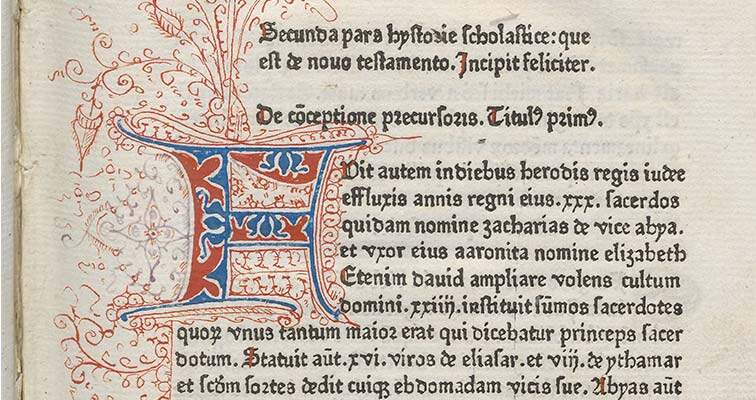 Secunda pars hystorie scholastice: que
est de nouo testamento. Incipit feliciter.
De cōceptione precursoris. Titulꝰ primꝰ.
FVit autem in diebus herodis regis iudee
effluxis annis regni eius .xxx. sacerdos
quidam nomine zacharias de vice abya.
et vxor eius aaronita nomine elizabeth
Etenim dauid ampliare volens cultum
domini .xxiiij. instituit sūmos sacerdotes
quoꝝ vnus tantum maior erat qui dicebatur princeps sacer
dotum. Statuit aūt .xvi. viros de eliasar. et viij. de ythamar
et scd̄m sortes dedit cuiqꝫ ebdomadam vicis sue. Abyas aūt